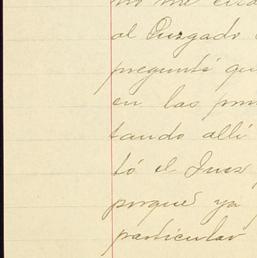 no me
al Juzgado
pregunté qu
en las
tando allí
tó el Juez
porque ya
particular